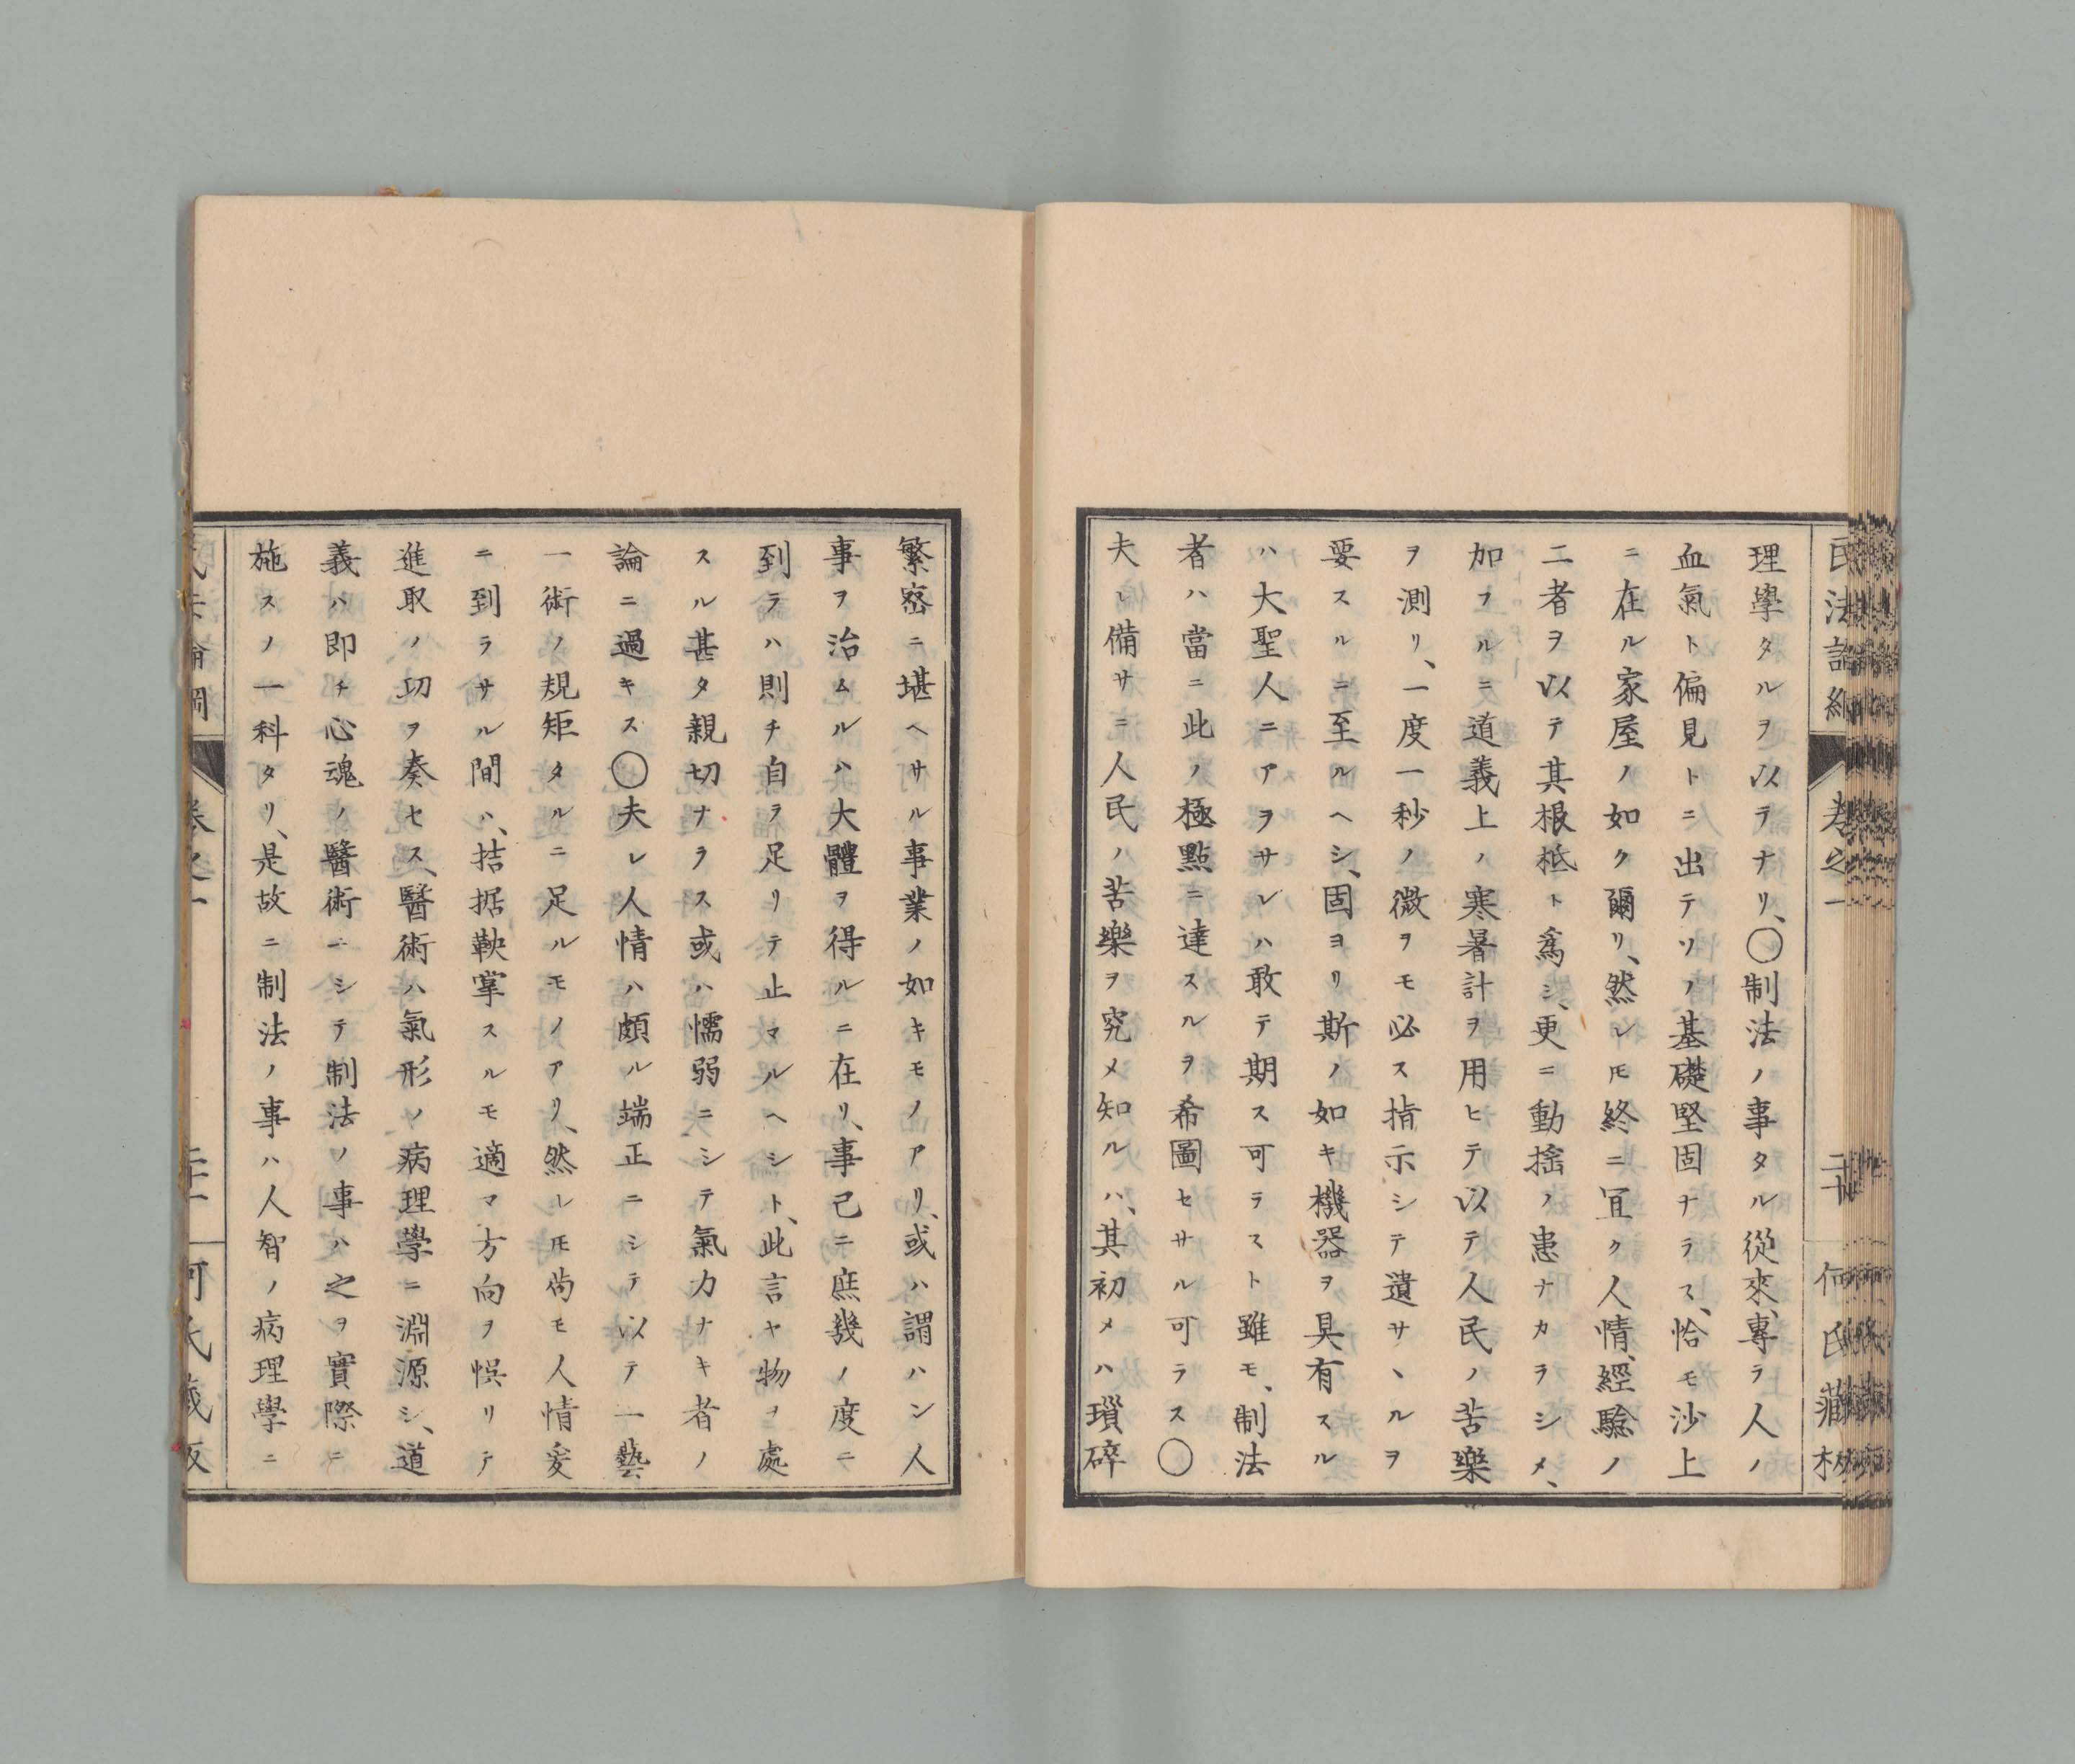 民法論綱
卷之一
二十
何氏藏板
理學タルヲ以テナリ、○制法ノ事タル從來、專ラ人ノ
血氣ト偏見トニ出テソノ基礎堅固ナラス、恰モ沙上
ニ在ル家屋ノ如ク爾リ、然レ𪜈終ニ宜ク人情、經驗ノ
二者ヲ以テ其根柢ト爲シ、更ニ動搖ノ患ナカラシメ、
加フルニ道義上ノ寒暑計ヲ用ヒテ以テ人民ノ苦樂
ヲ測リ、一度一秒ノ微ヲモ必ス指示シテ遺サヽルヲ
要スルニ至ルヘシ、固ヨリ斯ノ如キ機器ヲ具有スル
ハ大聖人ニアヲサレハ敢テ期ス可ラスト雖モ、制法
者ハ當ニ此ノ極點ニ達スルヲ希圖セサル可ラス○
夫レ備サニ人民ノ苦樂ヲ究メ知ルハ、其初メハ瑣碎
繁密ニ堪ヘサル事業ノ如キモノアリ、或ハ謂ハン人
事ヲ治ムルハ大體ヲ得ルニ在リ、事己ニ庶幾ノ度ニ
到ラハ則チ自ラ足リテ止マルヘシト、此言ヤ物ヲ處
スル甚タ親切ナラス或ハ懦弱ニシテ氣力ナキ者ノ
論ニ過キス○夫レ人情ハ頗ル端正ニシテ以テ一藝
一術ノ規矩タルニ足ルモノアリ、然レ𪜈尚モ人情爰
ニ到ラサル間ハ、拮据鞅掌スルモ適マ方向ヲ悞リテ
進取ノ切ヲ奏セス、醫術ハ氣形ノ病理學ニ淵源シ、道
義ハ即チ心魂ノ醫術ニシテ制法ノ事ハ之ヲ實際ニ
施スノ一科タリ、是故ニ制法ノ事ハ人智ノ病理學ニ
民法論綱
卷之一
二十一
何氏藏板